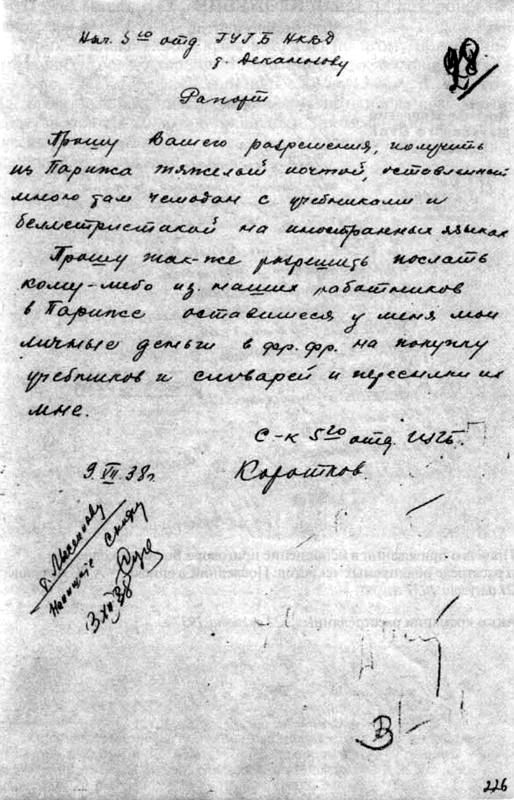 Нач. 5го отд. ГУГБ НКВД
т. Деканозову
98
Рапорт
Прошу Вашего разрешения, получить
из Парижа тяжелой почтой, оставленный
мною там чемодан с учебниками и
беллетристикой на иностранных языках
Прошу так-же разрешить послать
кому-либо из наших работников
в Париже оставшиеся у меня мои
личные деньги в фр. фр. на покупку
учебников и словарей и пересылки их
мне.
С-к 5го отд.
9.VII.38г. Коротков.
т.
Напишите
В
226